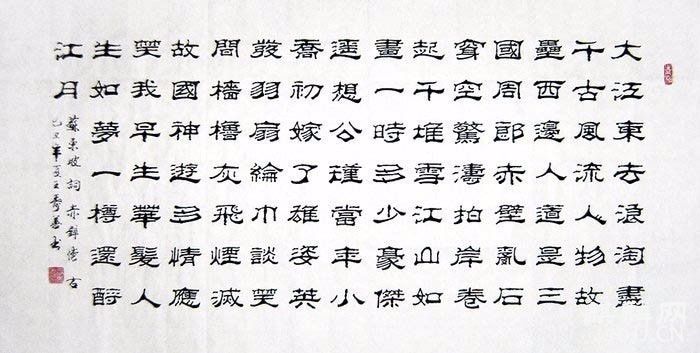 大江東去浪淘盡
千古風流人物故
壘西邊人道是三
國周郎赤壁亂石
穿空驚濤拍岸卷
起千堆雪江山如
畫一時多少豪傑
遥想公瑾當年小
喬初嫁了雄姿英
發羽扇綸巾談笑
間檣櫓灰飛煙滅
故國神遊多情應
笑我早生華髮人
生如夢一樽還酹
江月
蘇東坡詞赤壁懷古
己丑年夏王書